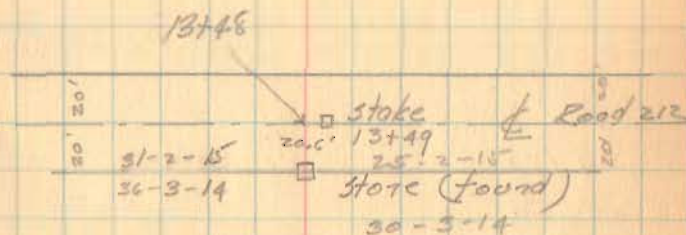 13+48
20'
20'
stake
℄ Road 212
20.6'
13+49
20'
20'
31-2-15
25-2-15
36-3-14
Stone (found)
30-3-14